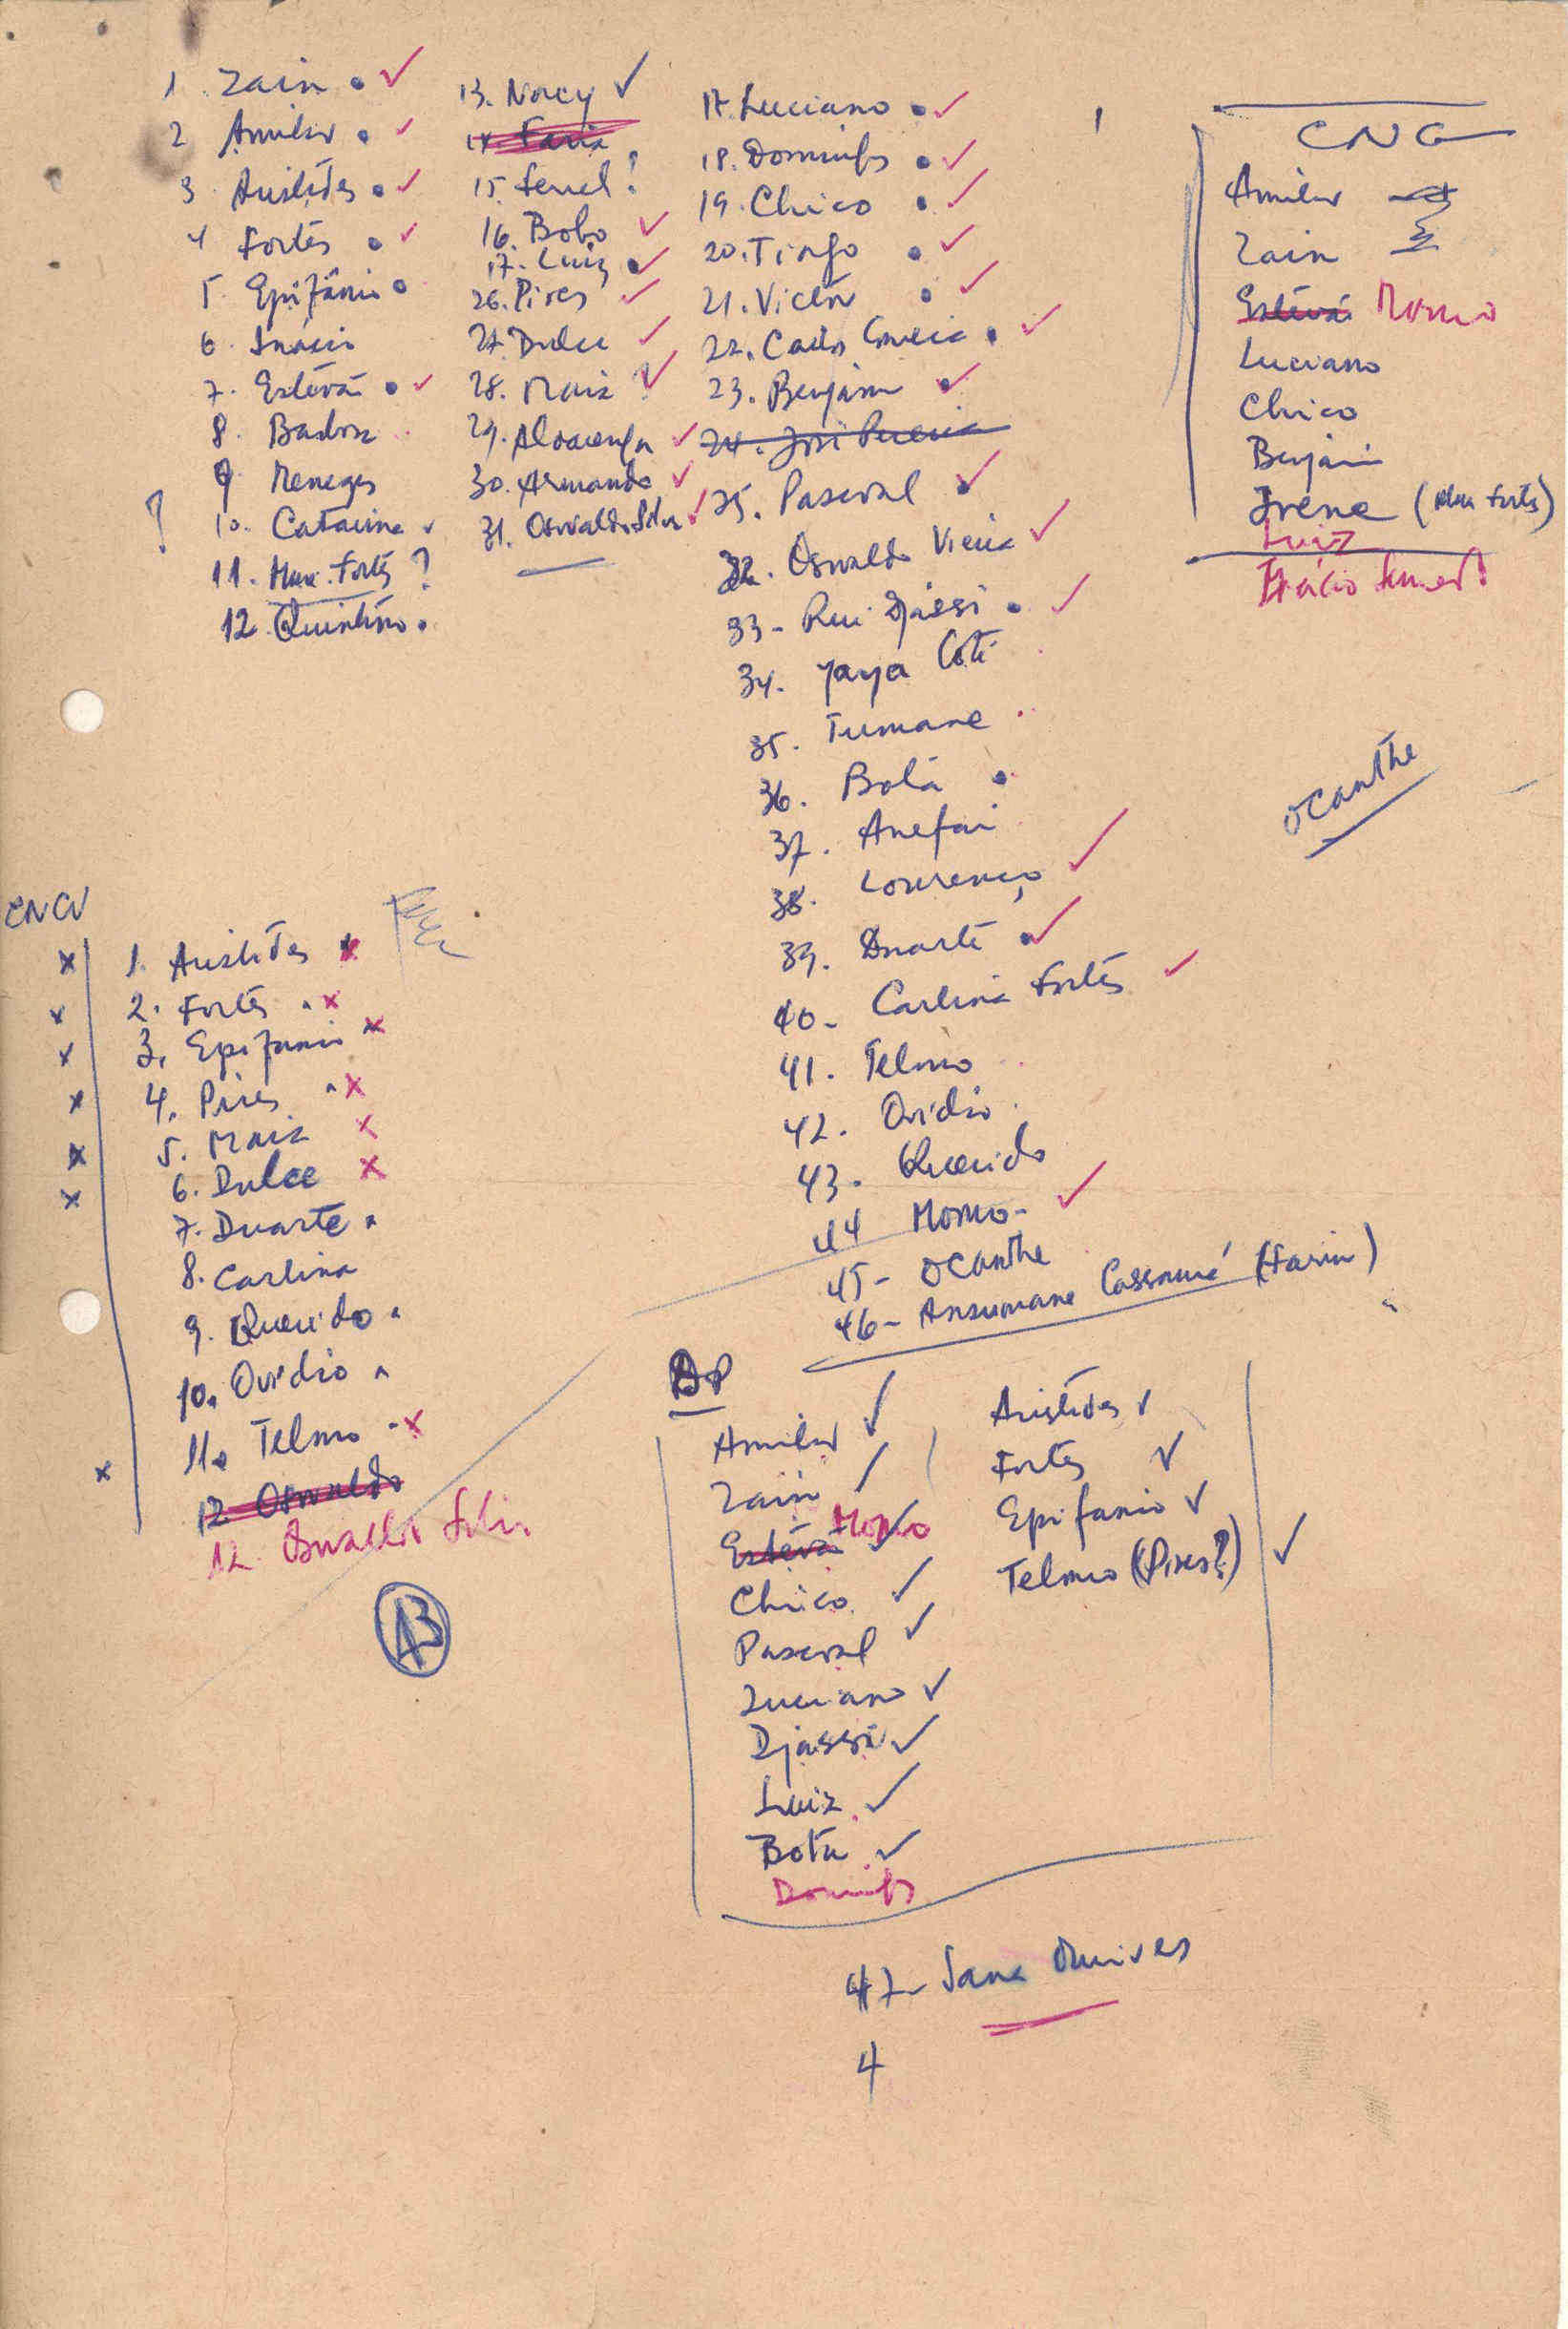 1. Zain • ✓
2 Amilcar • ✓
3 Aristides • ✓
4 Fortes • ✓
5. Epifânio •
6. Inácio
7. Estêvão • ✓
8. Barbosa
9 Menezes
? 10. Catarina ✓
11. Max. Fortes ?
12. Quintino •
13. Nacy ✓
14 Faria
15.
16. Bobo ✓
17. Luiz • ✓
26. Pires ✓
27. Dulce ✓
28. Maria ? ✓
29. Alvarenga ✓
30. Armando ✓
31. Osvaldo Silva ✓
17. Luciano • ✓
18. Domingos • ✓
19. Chico • ✓
20. Tiago • ✓
21. Victor • ✓
22. Carlos Correia • ✓
23. Benjamim • ✓
24. José Pereira
25. Pascoal • ✓
32. Osvaldo Vieira ✓
33- Rui Djassi • ✓
34. Yaya Coté
35. Tumane
36. Botá •
37. Anefai
38. Lourenço ✓
39. Duarte • ✓
40- Carlina Fortes ✓
41. Telmo
42. Ovídio
43. Querido
44 Momo- ✓
45- Ocanthe
46- Ansumane Cassamá (Farim)
CNG
Amilcar
Zain
Estêvão Momo
Luciano
Chico
Benjamim
Irene (Max Fortes)
Luiz
Inácio
Ocanthe
CNCV
x 1. Aristides x
x 2. Fortes x
x 3. Epifanio x
x 4. Pires x
x 5. Maria x
x 6. Dulce x
7. Duarte
8. Carlina
9. Querido
10. Ovídio
11. Telmo x
x 12 Osvaldo
12. Osvaldo Silva
13
BP
Amilcar ✓
Zain ✓
Estêvão Momo ✓
Chico ✓
Pascoal ✓
Luciano ✓
Djassi ✓
Luiz ✓
Bota ✓
Domingos
Aristides ✓
Fortes ✓
Epifanio ✓
Telmo (Pires?) ✓
47- Sana
4